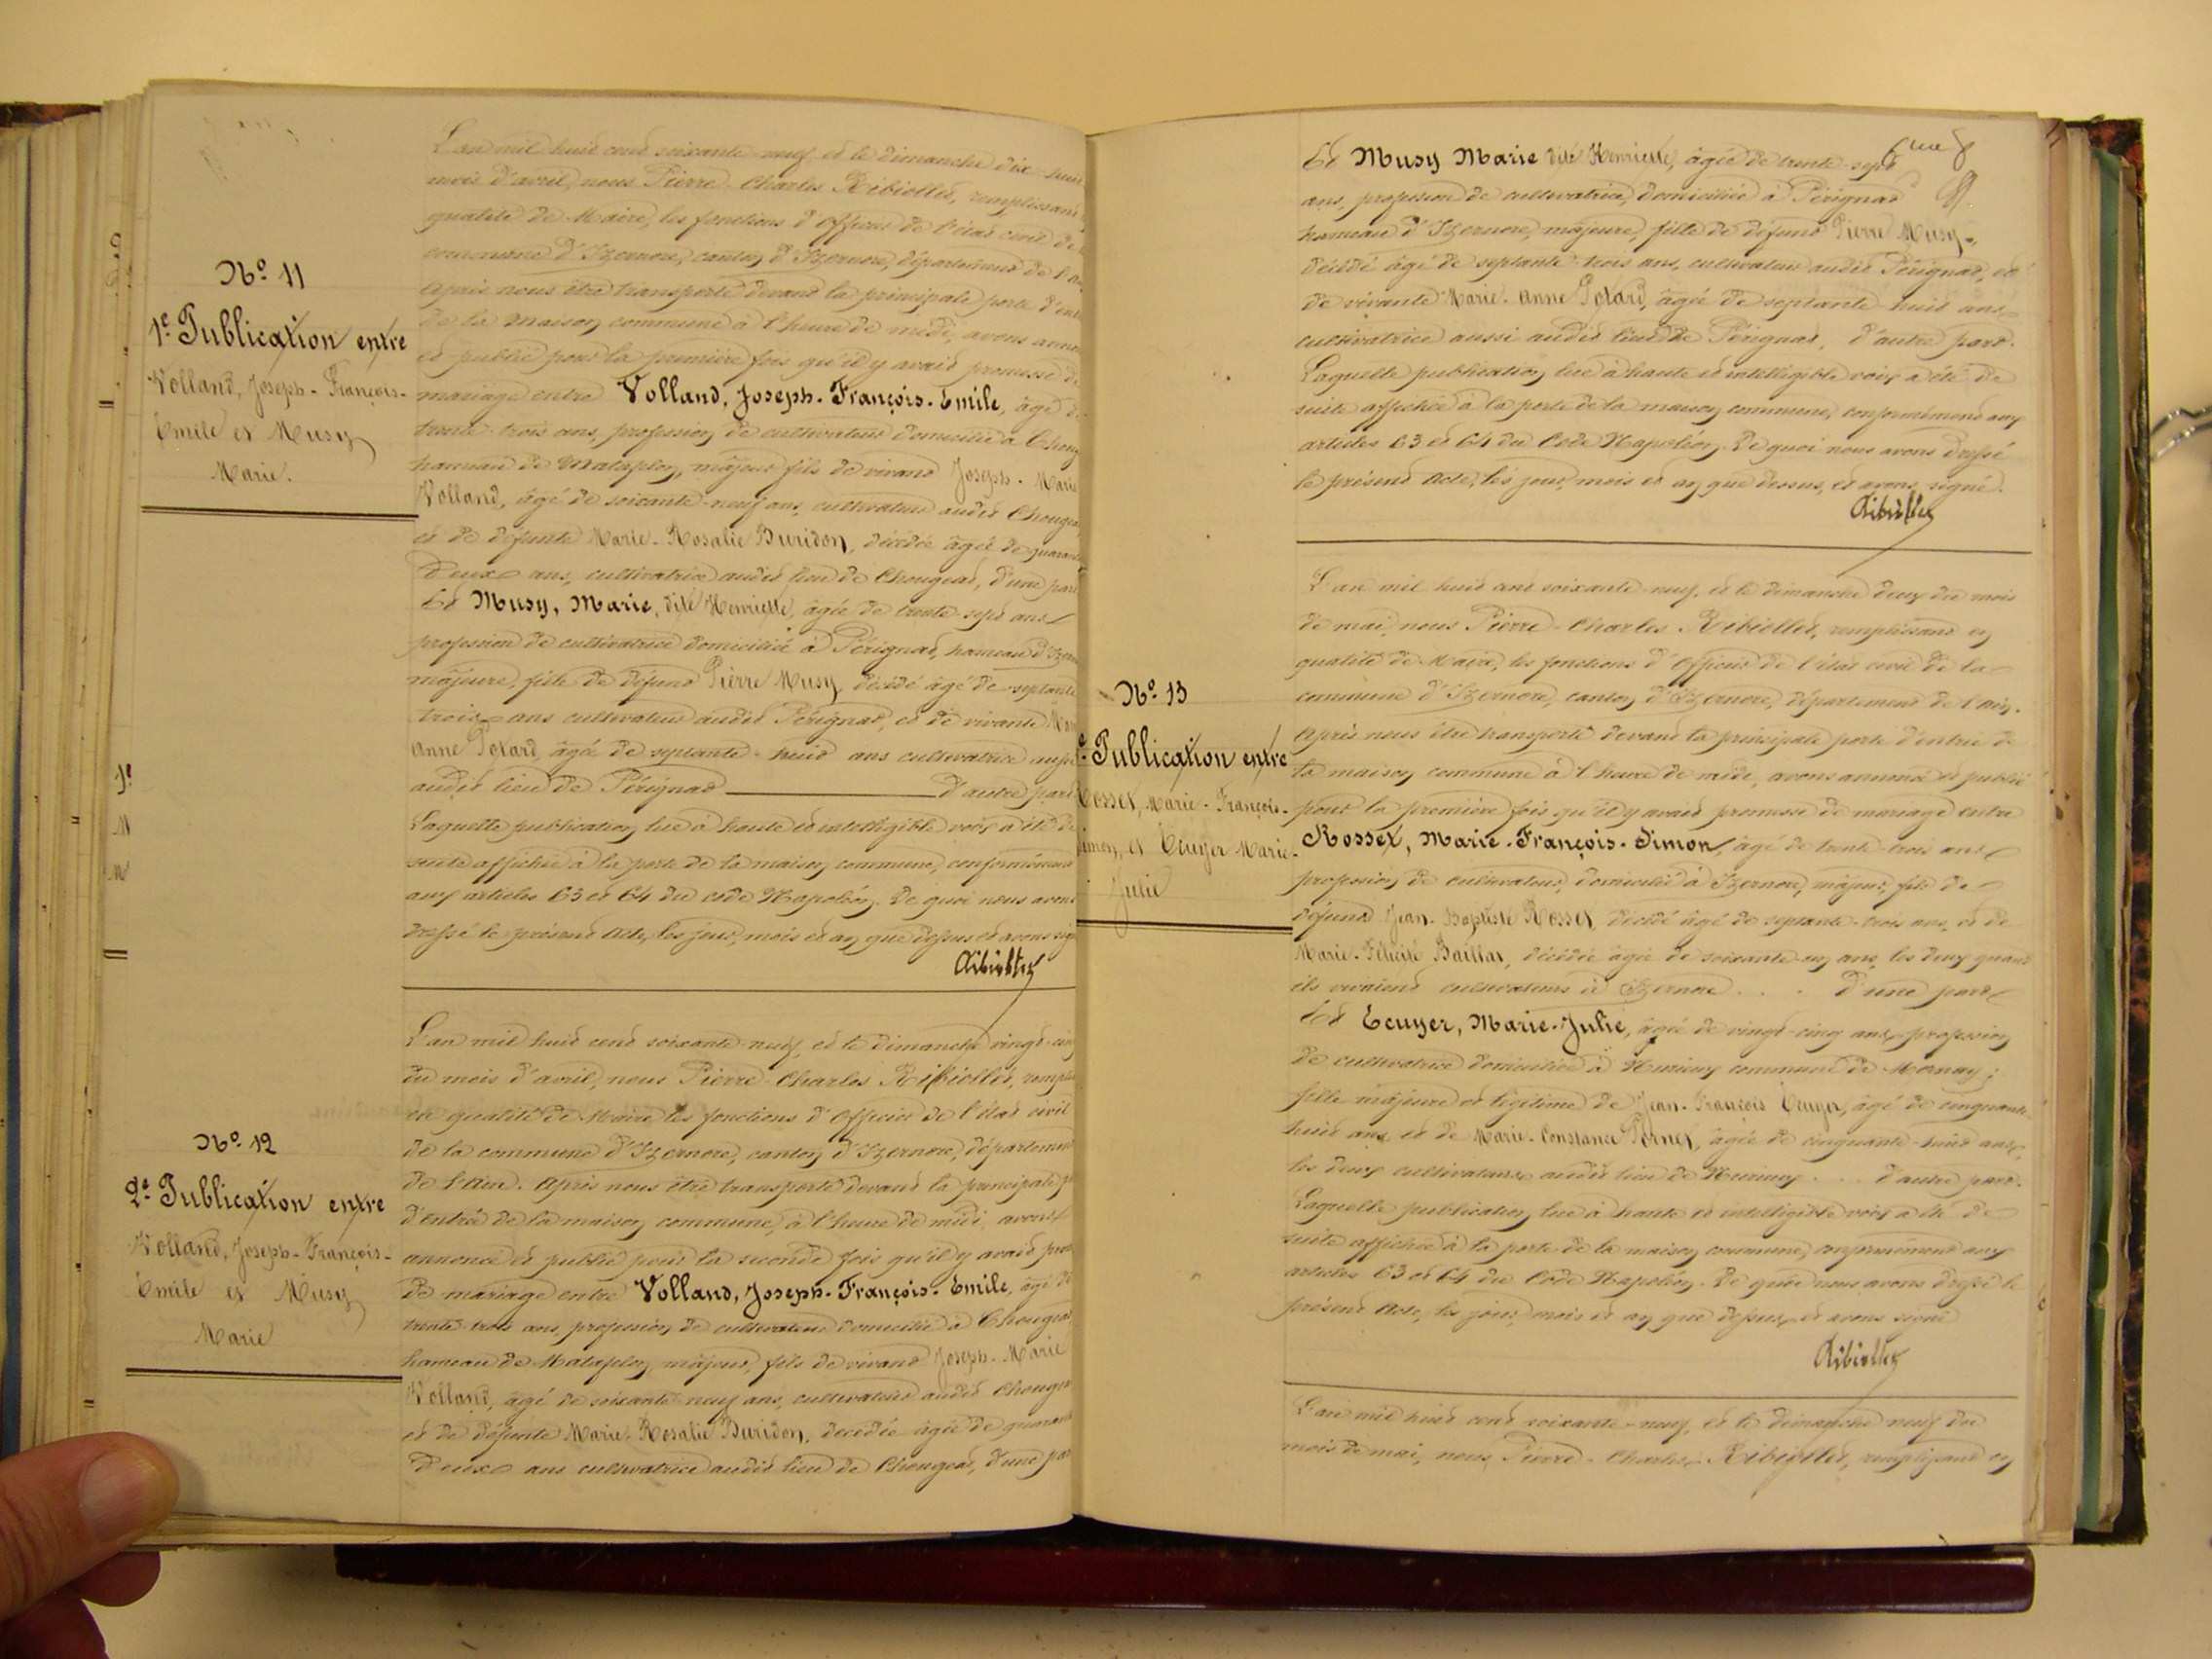 Nº 11
1e Publication entre
Volland, Joseph-François-
Emile et Musy
Marie.
L'an mil huit cent soixante-neuf et le dimanche dix-huit
mois d'avril, nous Pierre-Charles Ribiollet, remplissant
qualité de Maire, les fonctions d'officier de l'état civil de
commune d'Izernore, canton d'Izernore, département de l'A
Après nous être transporté devant la principale porte d'ent
de la Maison commune à l'heure de midi, avons anno
et publié pour la première fois qu'il y avait promesse de
mariage entre Volland, Joseph-François-Emile, âgé de
trente-trois ans, profession de cultivateur domicilié à Choug
hameau de Matafelon, majeur, fils de vivant Joseph-Marie
Volland, âgé de soixante-neuf ans, cultivateur audit Chougea
et de défunte Marie-Rosalie Buridon, décédée âgée de quarante
deux ans, cultivatrice audit lieu de Chougeat, d'une part
Et Musy, Marie, dite Henriette, âgée de trente-sept ans
profession de cultivatrice domiciliée à Pérignat, hameau d'Izern
majeure, fille de défunt Pierre Musy décédé âgé de septante
trois ans cultivateur audit Pérignat, et de vivante Mar
Anne Potard, âgée de septante-huit ans cultivatrice aussi
audit lieu de Pérignat d'autre part
Laquelle publication lue à haute et intelligible voix a été de
suite affichée à la porte de la maison commune, conformément
aux articles 63 et 64 du code Napoléon. De quoi nous avons
dressé le présent acte, les jour, mois et an que dessus et avons sig
Ribiollet
Nº 12
2e Publication entre
Volland, Joseph-François-
Emile et Musy
Marie
L'an mil huit cent soixante-neuf, et le dimanche vingt-cinq
du mois d'avril, nous Pierre-Charles Ribiollet, rempli
en qualité de Maire les fonctions d'officier de l'état civil
de la commune d'Izernore, canton d'Izernore, département
de l'Ain. Après nous être transporté devant la principale p
d'entrée de la maison commune, à l'heure de midi, avons
annoncé et publié pour la seconde fois qu'il y avait prom
de mariage entre Volland, Joseph-François-Emile, âgé de
trente-trois ans, profession de cultivateur domicilié à Chougeat
hameau de Matafelon, majeur, fils de vivant Joseph-Marie
Volland, âgé de soixante-neuf ans, cultivateur audit Chougea
et de défunte Marie-Rosalie Buridon, décédée âgée de quarante
deux ans cultivatrice audit lieu de Chougeat, d'une par
Et Musy Marie dite Henriette, âgée de trente-sept
ans, profession de cultivatrice, domiciliée à Pérignat
hameau d'Izernore, majeure, fille de défunt Pierre Musy,
décédé âgé de septante-trois ans, cultivateur audit Pérignat, et
de vivante Marie-Anne Potard, âgée de septante-huit ans
cultivatrice aussi audit lieu de Pérignat, d'autre part.
Laquelle publication lue à haute et intelligible voix a été de
suite affichée à la porte de la maison commune, conformément aux
articles 63 et 64 du Code Napoléon. De quoi nous avons dressé
le présent acte, les jour, mois et an que dessus, et avons signé.
Ribiollet
Nº 13
e Publication entre
Rosset, Marie-François-
imon, et Ecuyer Marie-
Julie
L'an mil huit cent soixante-neuf, et le dimanche deux du mois
de mai, nous Pierre-Charles Ribiollet, remplissant en
qualité de Maire, les fonctions d'officier de l'état civil de la
commune d'Izernore, canton d'Izernore, département de l'Ain.
Après nous être transporté devant la principale porte d'entrée de
la maison commune à l'heure de midi, avons annoncé et publié
pour la première fois qu'il y avait promesse de mariage entre
Rosset, Marie-François-Simon, âgé de trente-trois ans
profession de cultivateur, domicilié à Izernore, majeur, fils de
défunt Jean-Baptiste Rosset, décédé âgé de septante-trois ans, et de
Marie-Félicité Baillat, décédée âgée de soixante-un ans, les deux quand
ils vivaient cultivateurs à Izernore . . . d'une part
Et Ecuyer, Marie-Julie, âgée de vingt-cinq ans, profession
de cultivatrice domiciliée à commune de Mornay;
fille majeure et légitime de Jean-François Ecuyer, âgé de cinquante-
huit ans et de Marie-Constance Pernet, âgée de cinquante-huit ans,
les deux cultivateurs audit lieu de . . . d'autre part.
Laquelle publication lue à haute et intelligible voix a été de
suite affichée à la porte de la maison commune, conformément aux
articles 63 et 64 du Code Napoléon. De quoi nous avons dressé le
présent acte, les jour, mois et an que dessus, et avons signé
Ribiollet
L'an mil huit cent soixante-neuf, et le dimanche neuf du
mois de mai, nous, Pierre-Charles Ribiollet, remplissant en